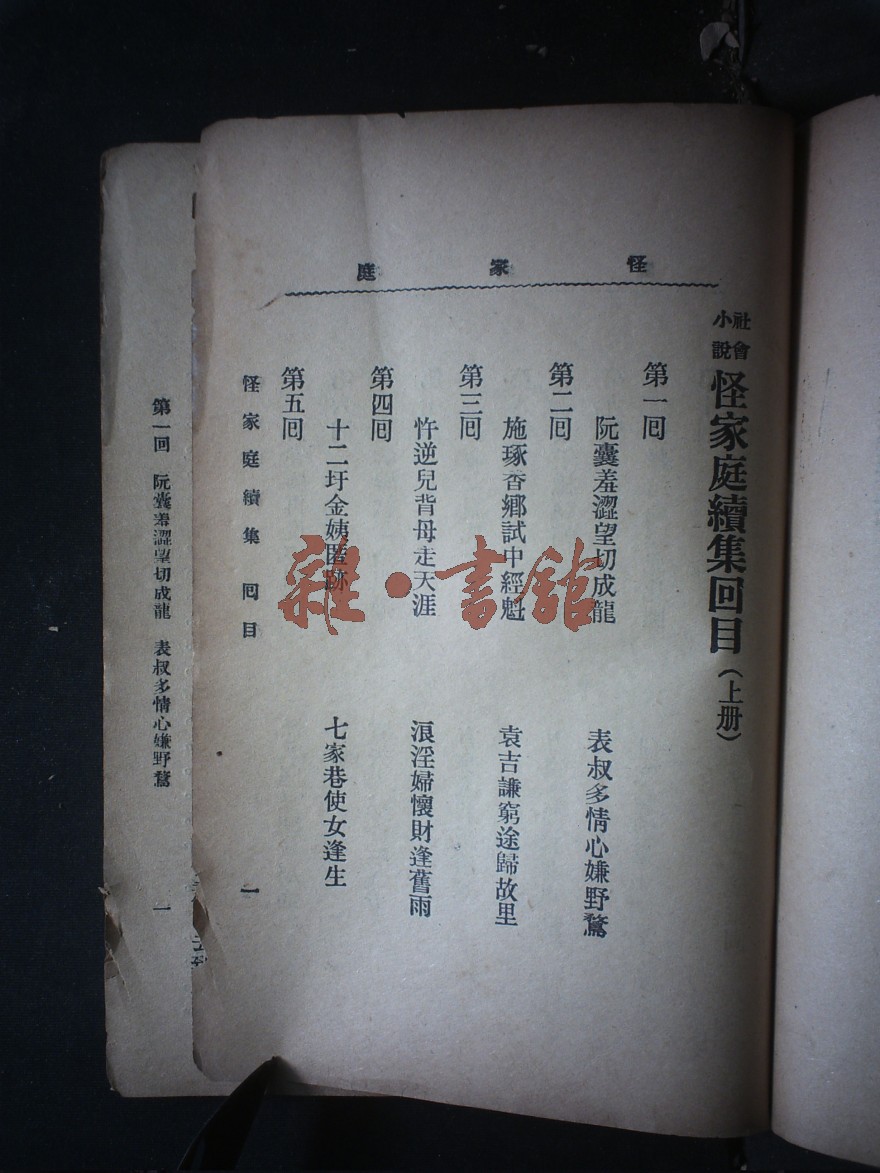 怪家庭
社會小說 怪家庭續集回目(上册)
第一回
阮囊羞澀望切成龍 表叔多情心嫌野鶩
第二回
施琢香鄉試中經魁 袁吉謙窮途歸故里
第三回
忤逆兒背母走天涯 浪淫婦懷財逢舊雨
第四回
十二圩金姨匿跡 七家巷使女逢生
第五回
怪家庭續集 回目 一
第一回 阮囊羞澀望切成龍 表叔多情心嫌野鶩 一
雜·書館